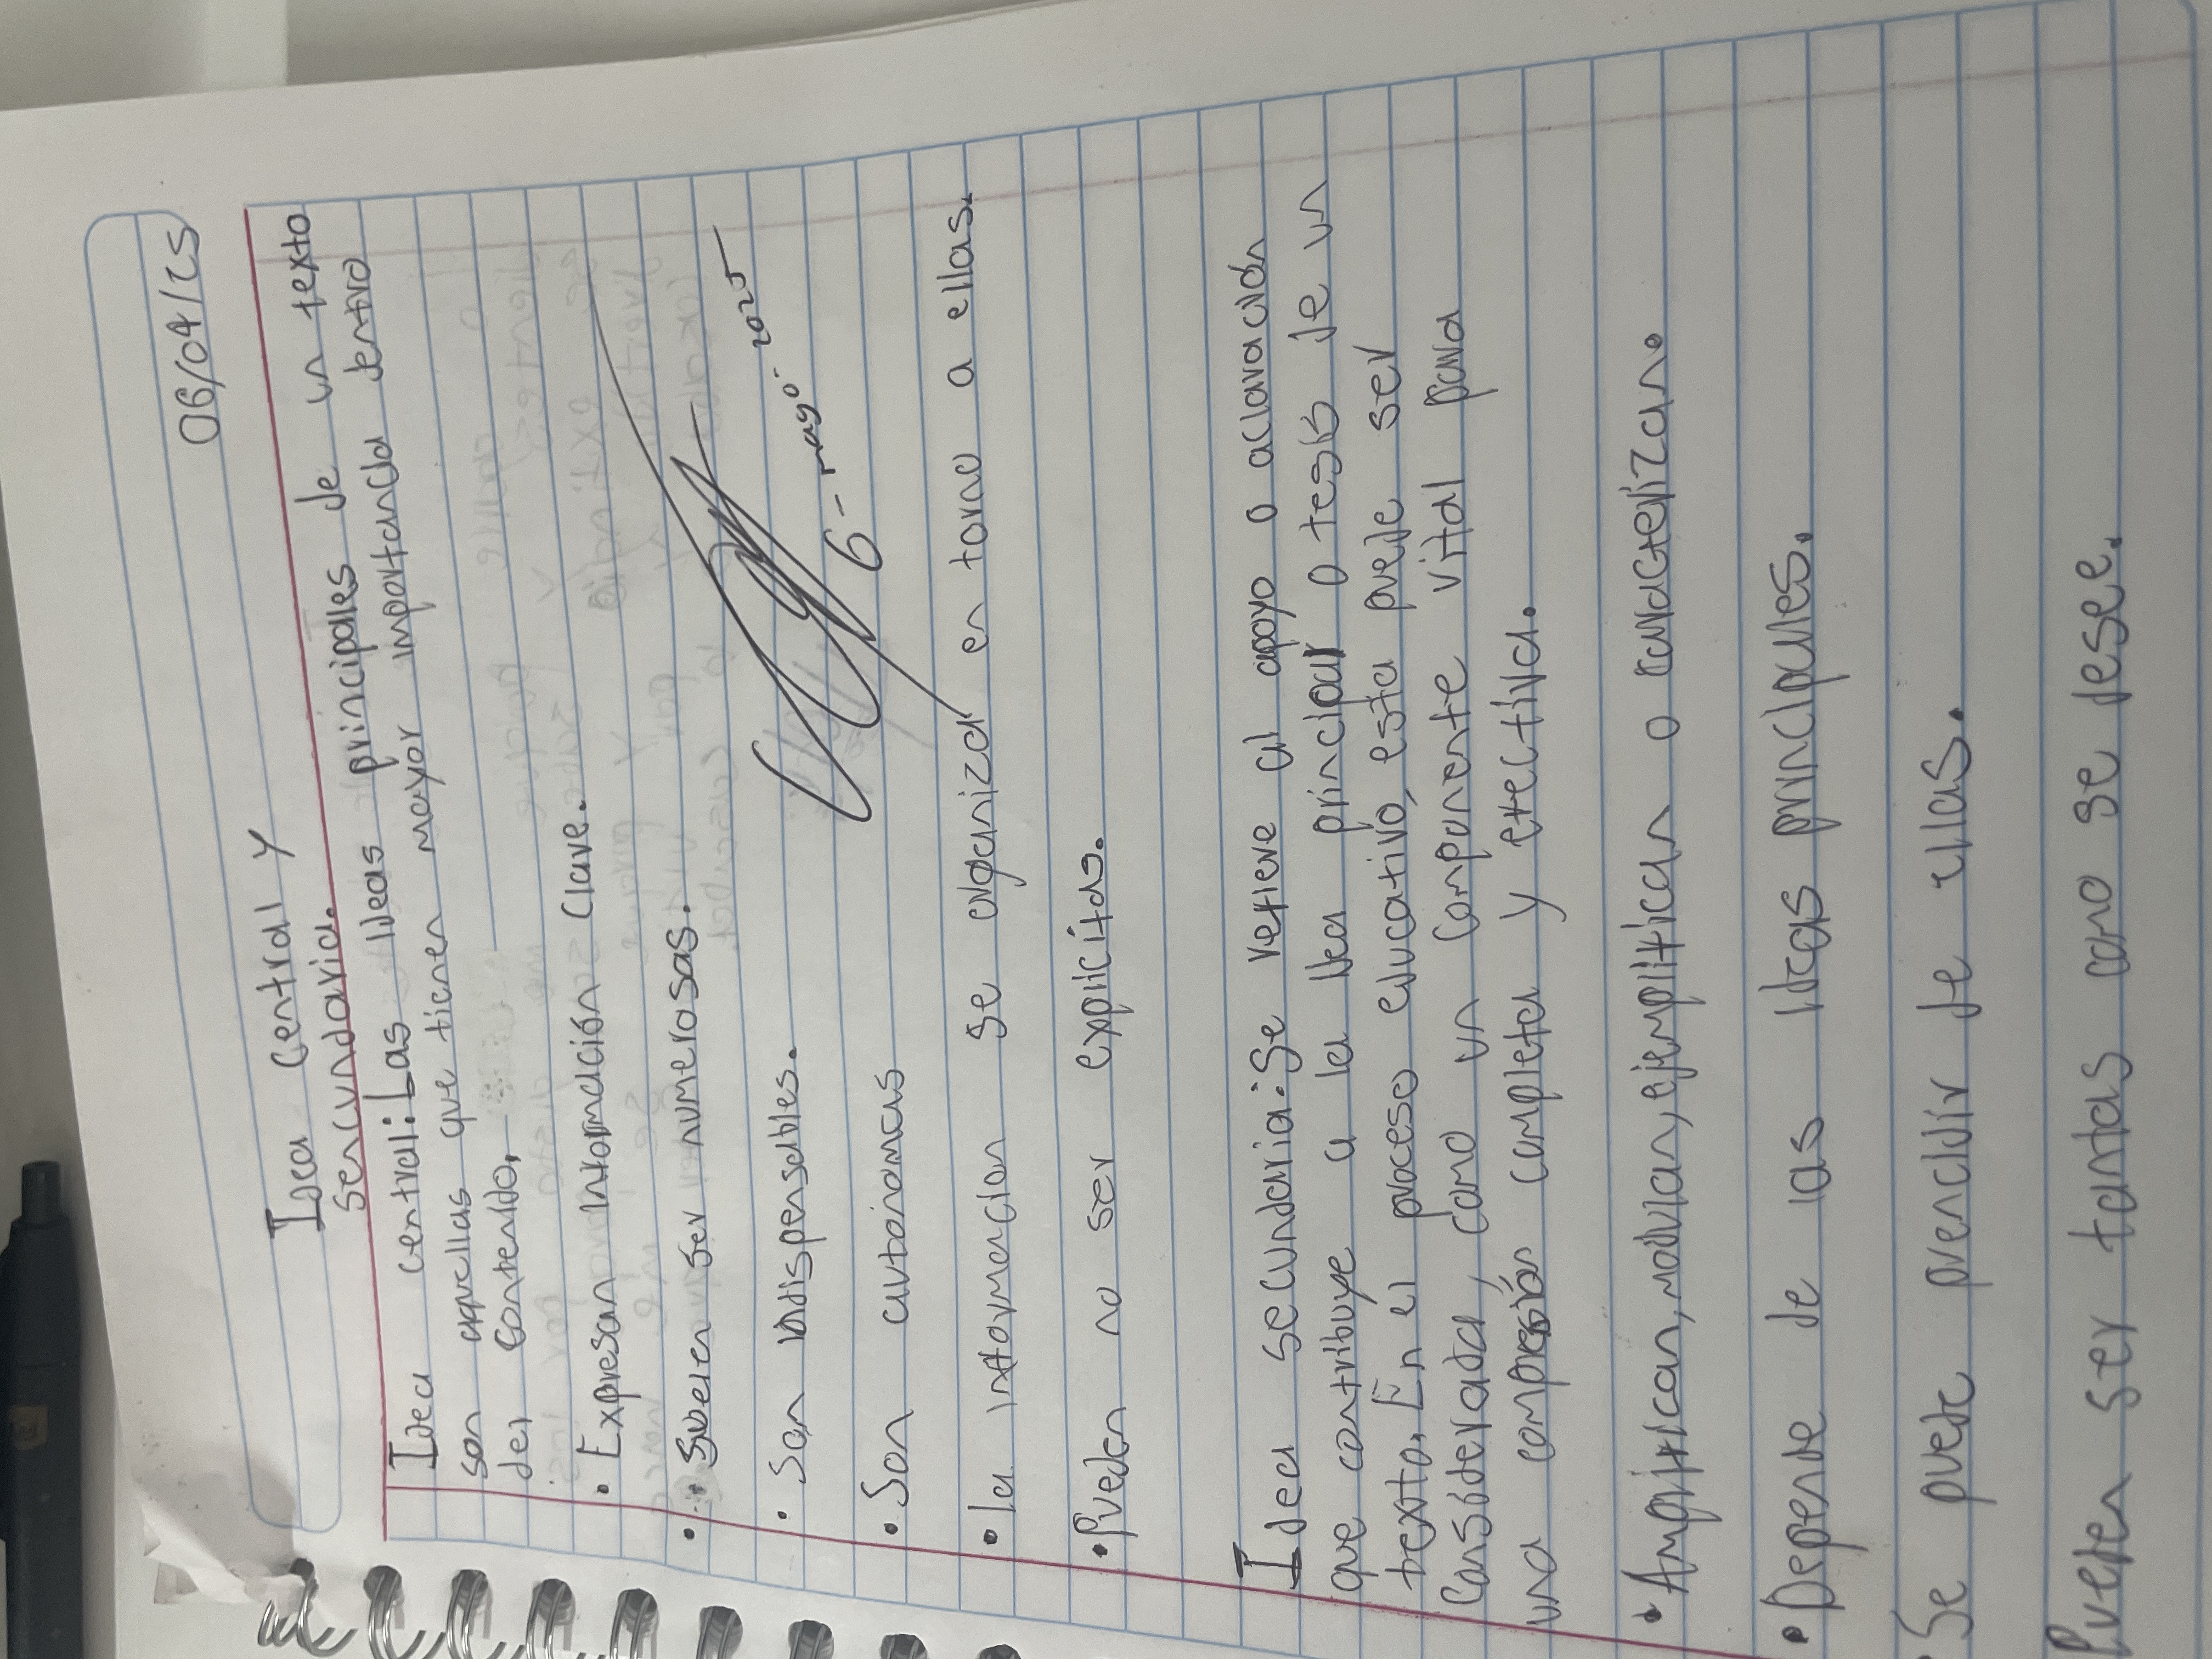 06/04/25
Idea central y
Sencundaria.
Idea central: Las ideas principales de un texto
son aquellas que tienen mayor importancia dentro
del contenido.
• Expresan información clave.
• Suelen ser numerosas.
• Son indispensables.
• Son autónomas
6 - mayo - 2025
• la información se organiza en torno a ellas.
• Pueden no ser explicitas.
Idea secundaria: Se refiere al apoyo o aclaración
que contribuye a la idea principal o tesis de un
texto. En el proceso educativo, esta puede ser
Considerada, como un componente vital para
una compresión completa y efectiva.
• Amplifican, motivan, ejemplifican o caracterizan.
• Depende de las ideas principales.
Se puede prencidir de ellas.
Pueden ser tantas como se dese.